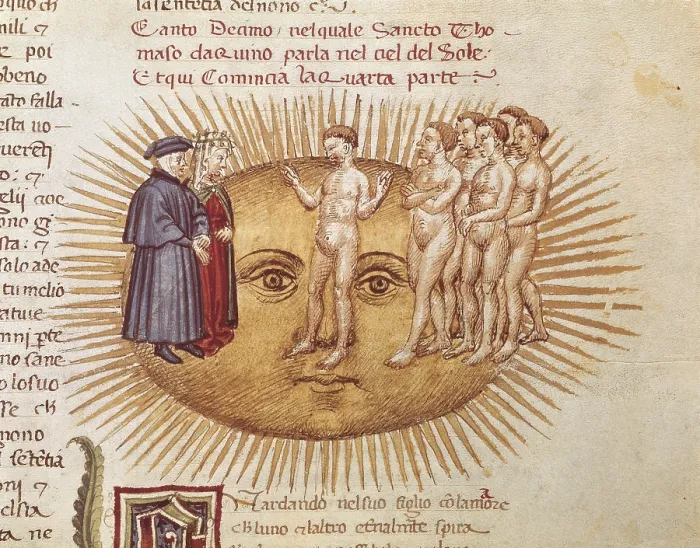 la sententia del nono c°.
Canto Decimo, nelquale Sancto Tho
maso daquino parla nel ciel del Sole.
Et qui Comincia la quarta parte
quo ch
nili &
e poi
obeno
tato falla
esta uo
o: &
elij
ono gi
sta: &
solo ade
tu melio
ratiue
mnj pte
no sane
o losuo
sse ch
nono
setētia
onj &
ta ne
Uardando nelsuo figlio cō lamore
ch luno & laltro eternalmēte spira